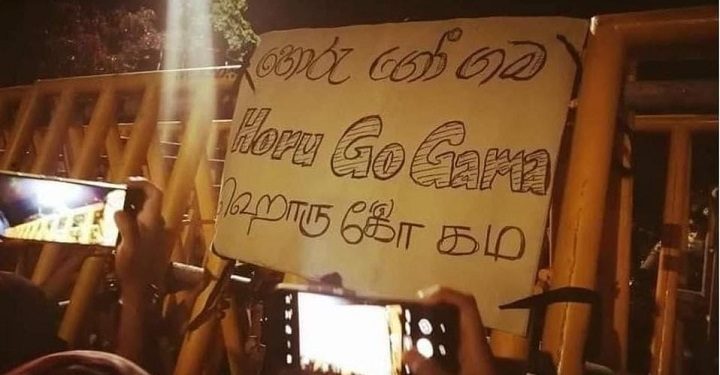 හොරු ගෝ ගම
Horu Go Gama
ஹொரு கோ கம